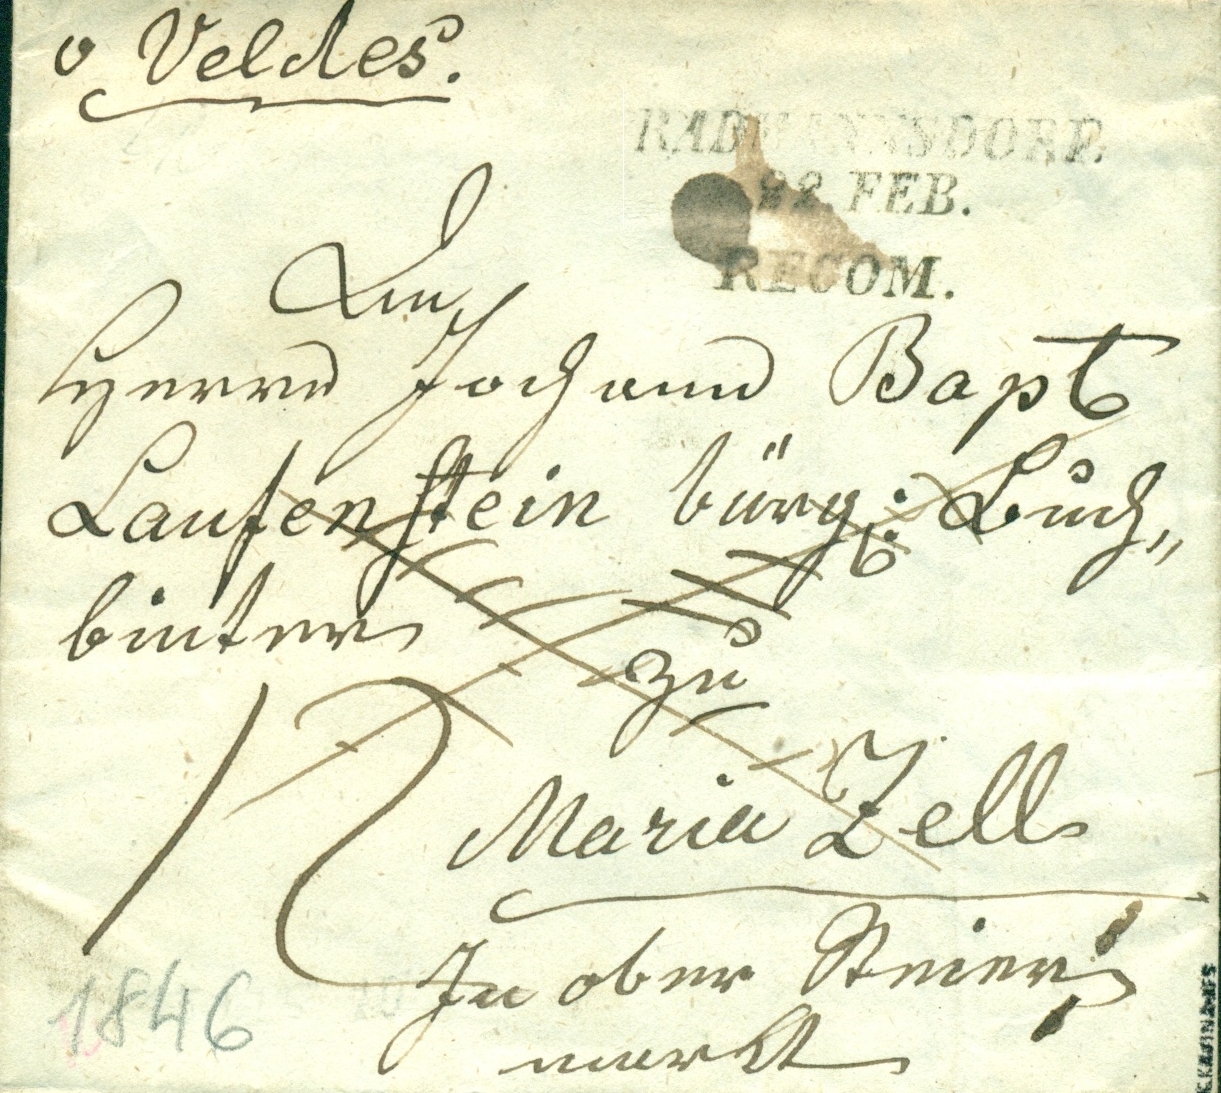 v Veldes.
RADMANNSDORF.
22. FEB.
RECOM.
An
Herrn Johann Bapt
Laufenstein bürg: Buch„
binter
zu
12
Maria Zell
In ober Steier
markt
1846